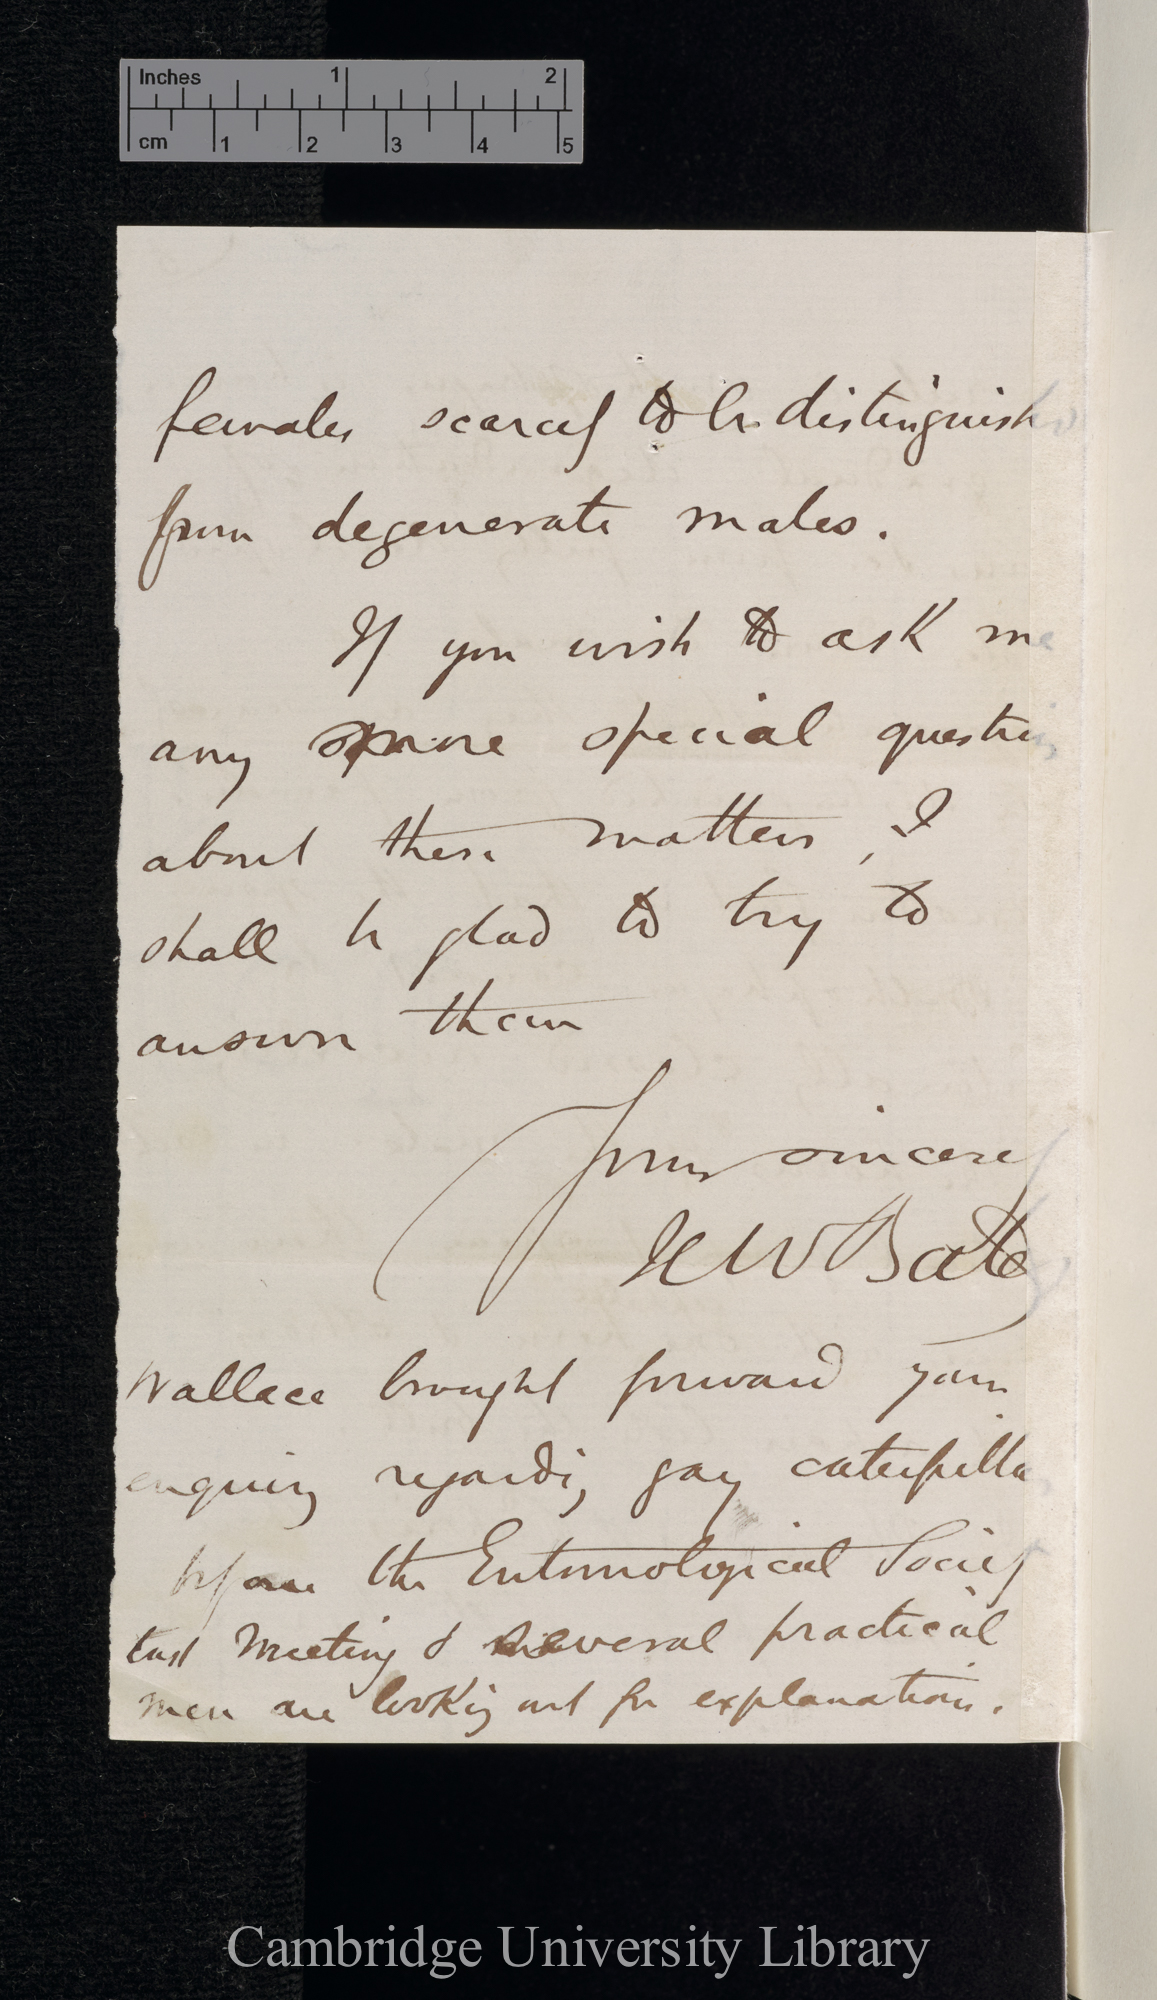 Inches 1 2
cm 1 2 3 4 5
females scarcely to be distinguished
from degenerate males.
If you wish to ask me
any more special question
about these matters, I
shall be glad to try to
answer them
Yours sincerely
H W Bates
Wallace brought forward your
enquiry regarding gay caterpillar
before the Entomological Society
last Meeting & several practical
men are looking out for explanations.
Cambridge University Library